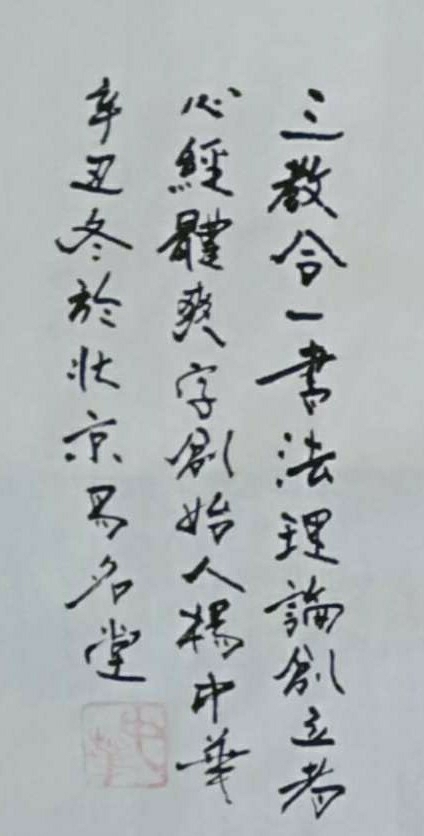 三教合一書法理論創立者
心經體爽字創始人楊中華
辛丑冬於北京易名堂
中華